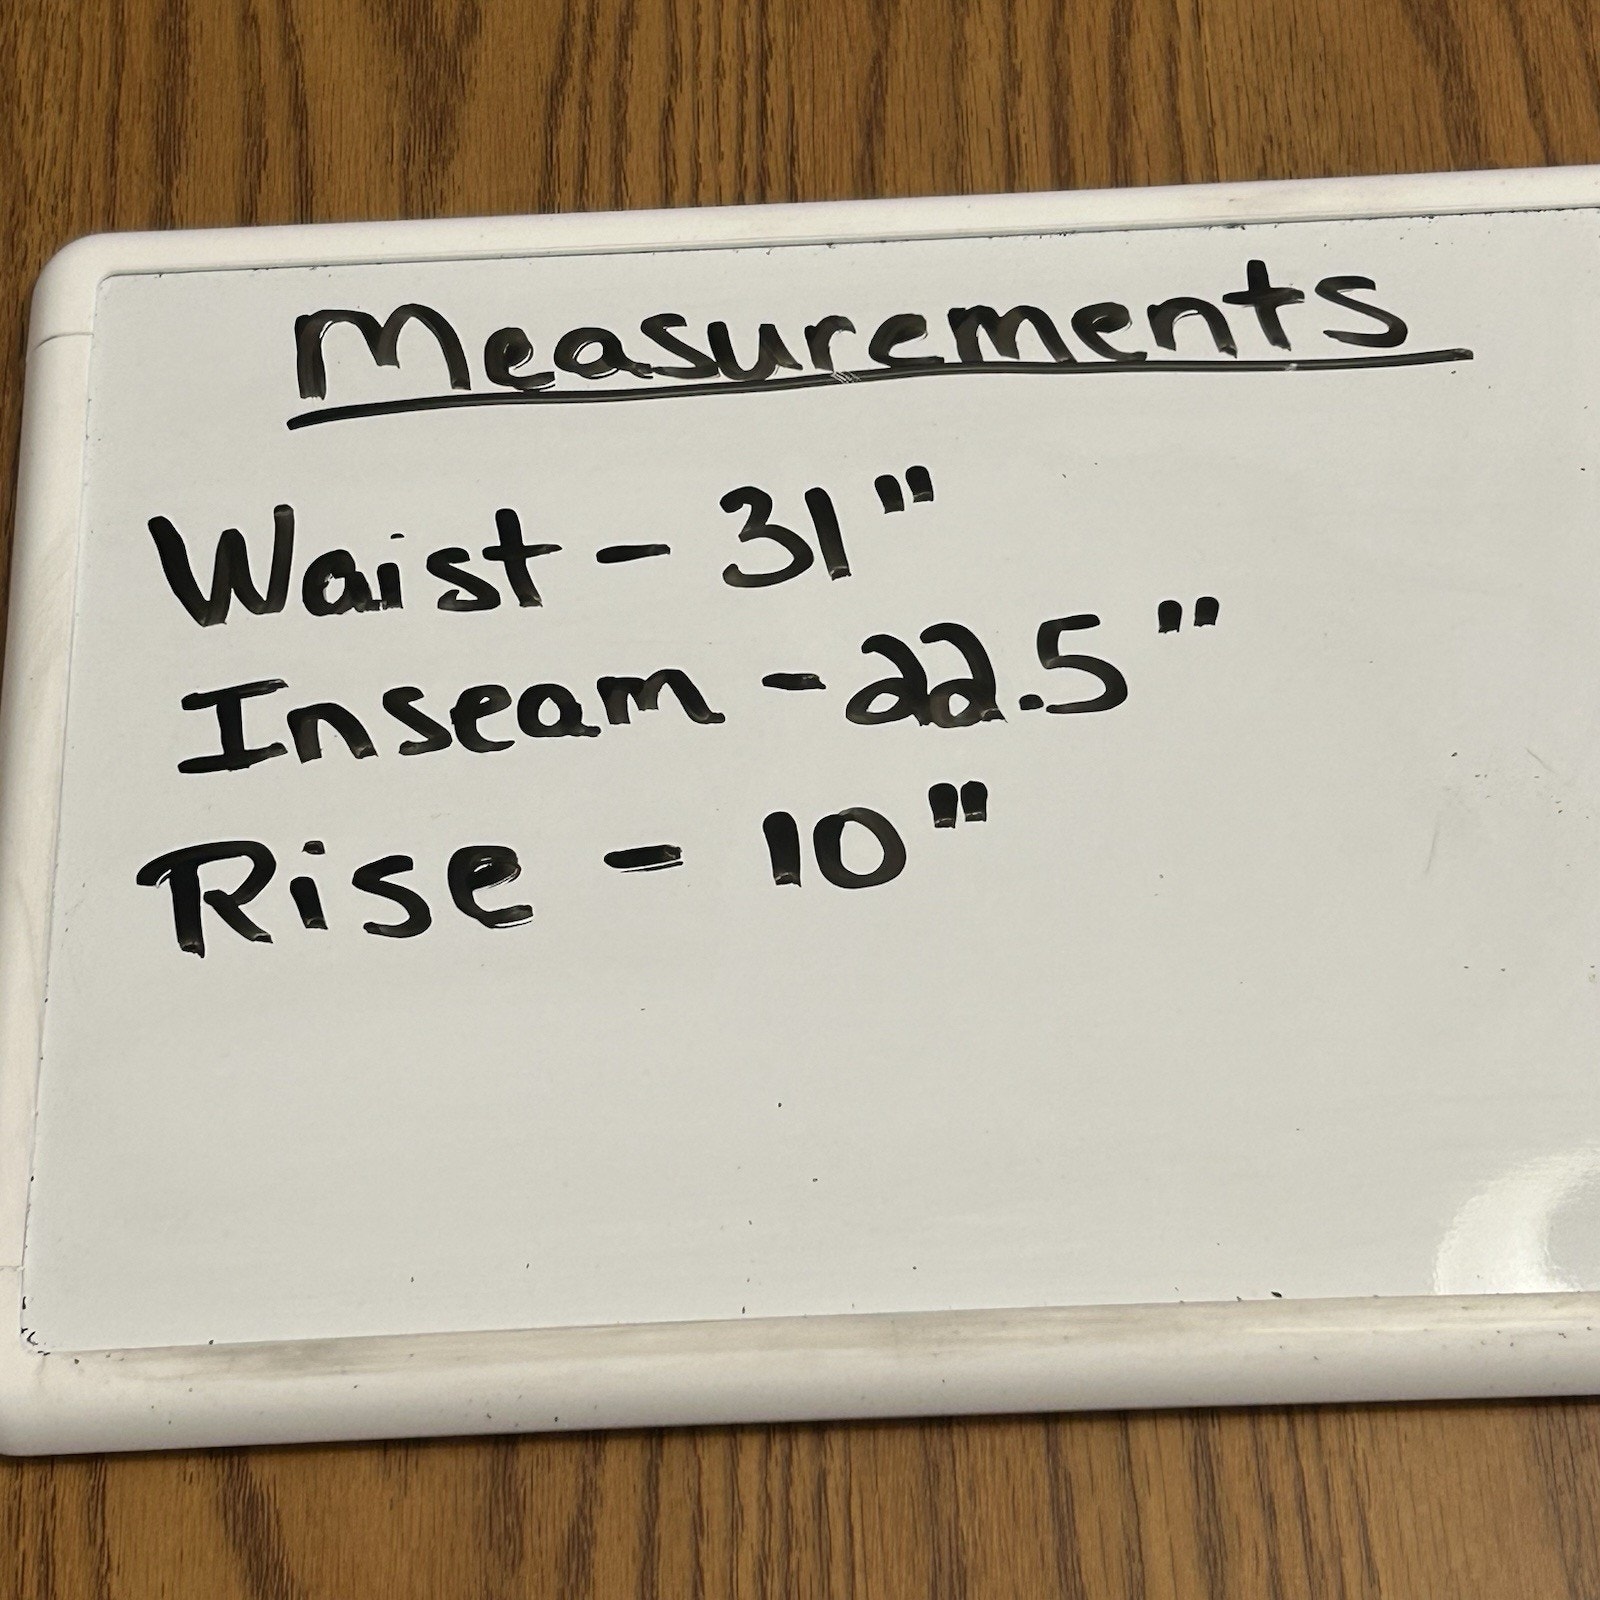 Measurements
Waist - 31"
Inseam - 22.5"
Rise - 10"